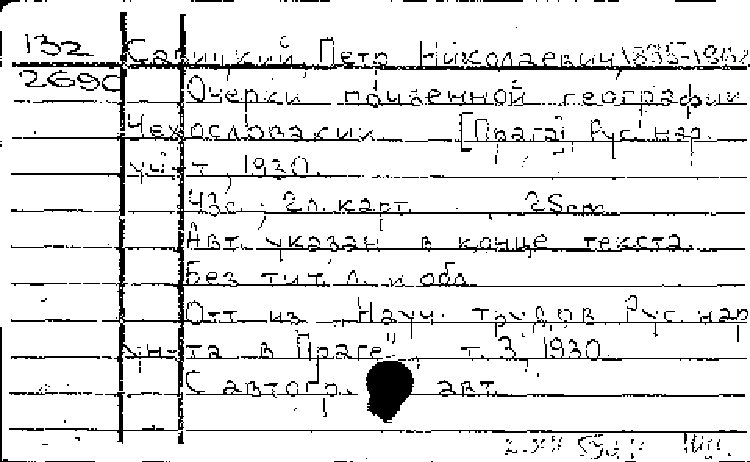 132 Савицкий, Петр Николаевич,
2690 Очерки почвенной географии
Чехословакии [Прага], Рус. нар.
ун-т, 1930.
43с.; 2л. карт. 25см
Авт. указан в конце текста.
Без тит. л. и обл.
Отт. из „Науч. трудов Рус. нар.
ун-та в Праге", т. 3, 1930.
С автогр. авт.